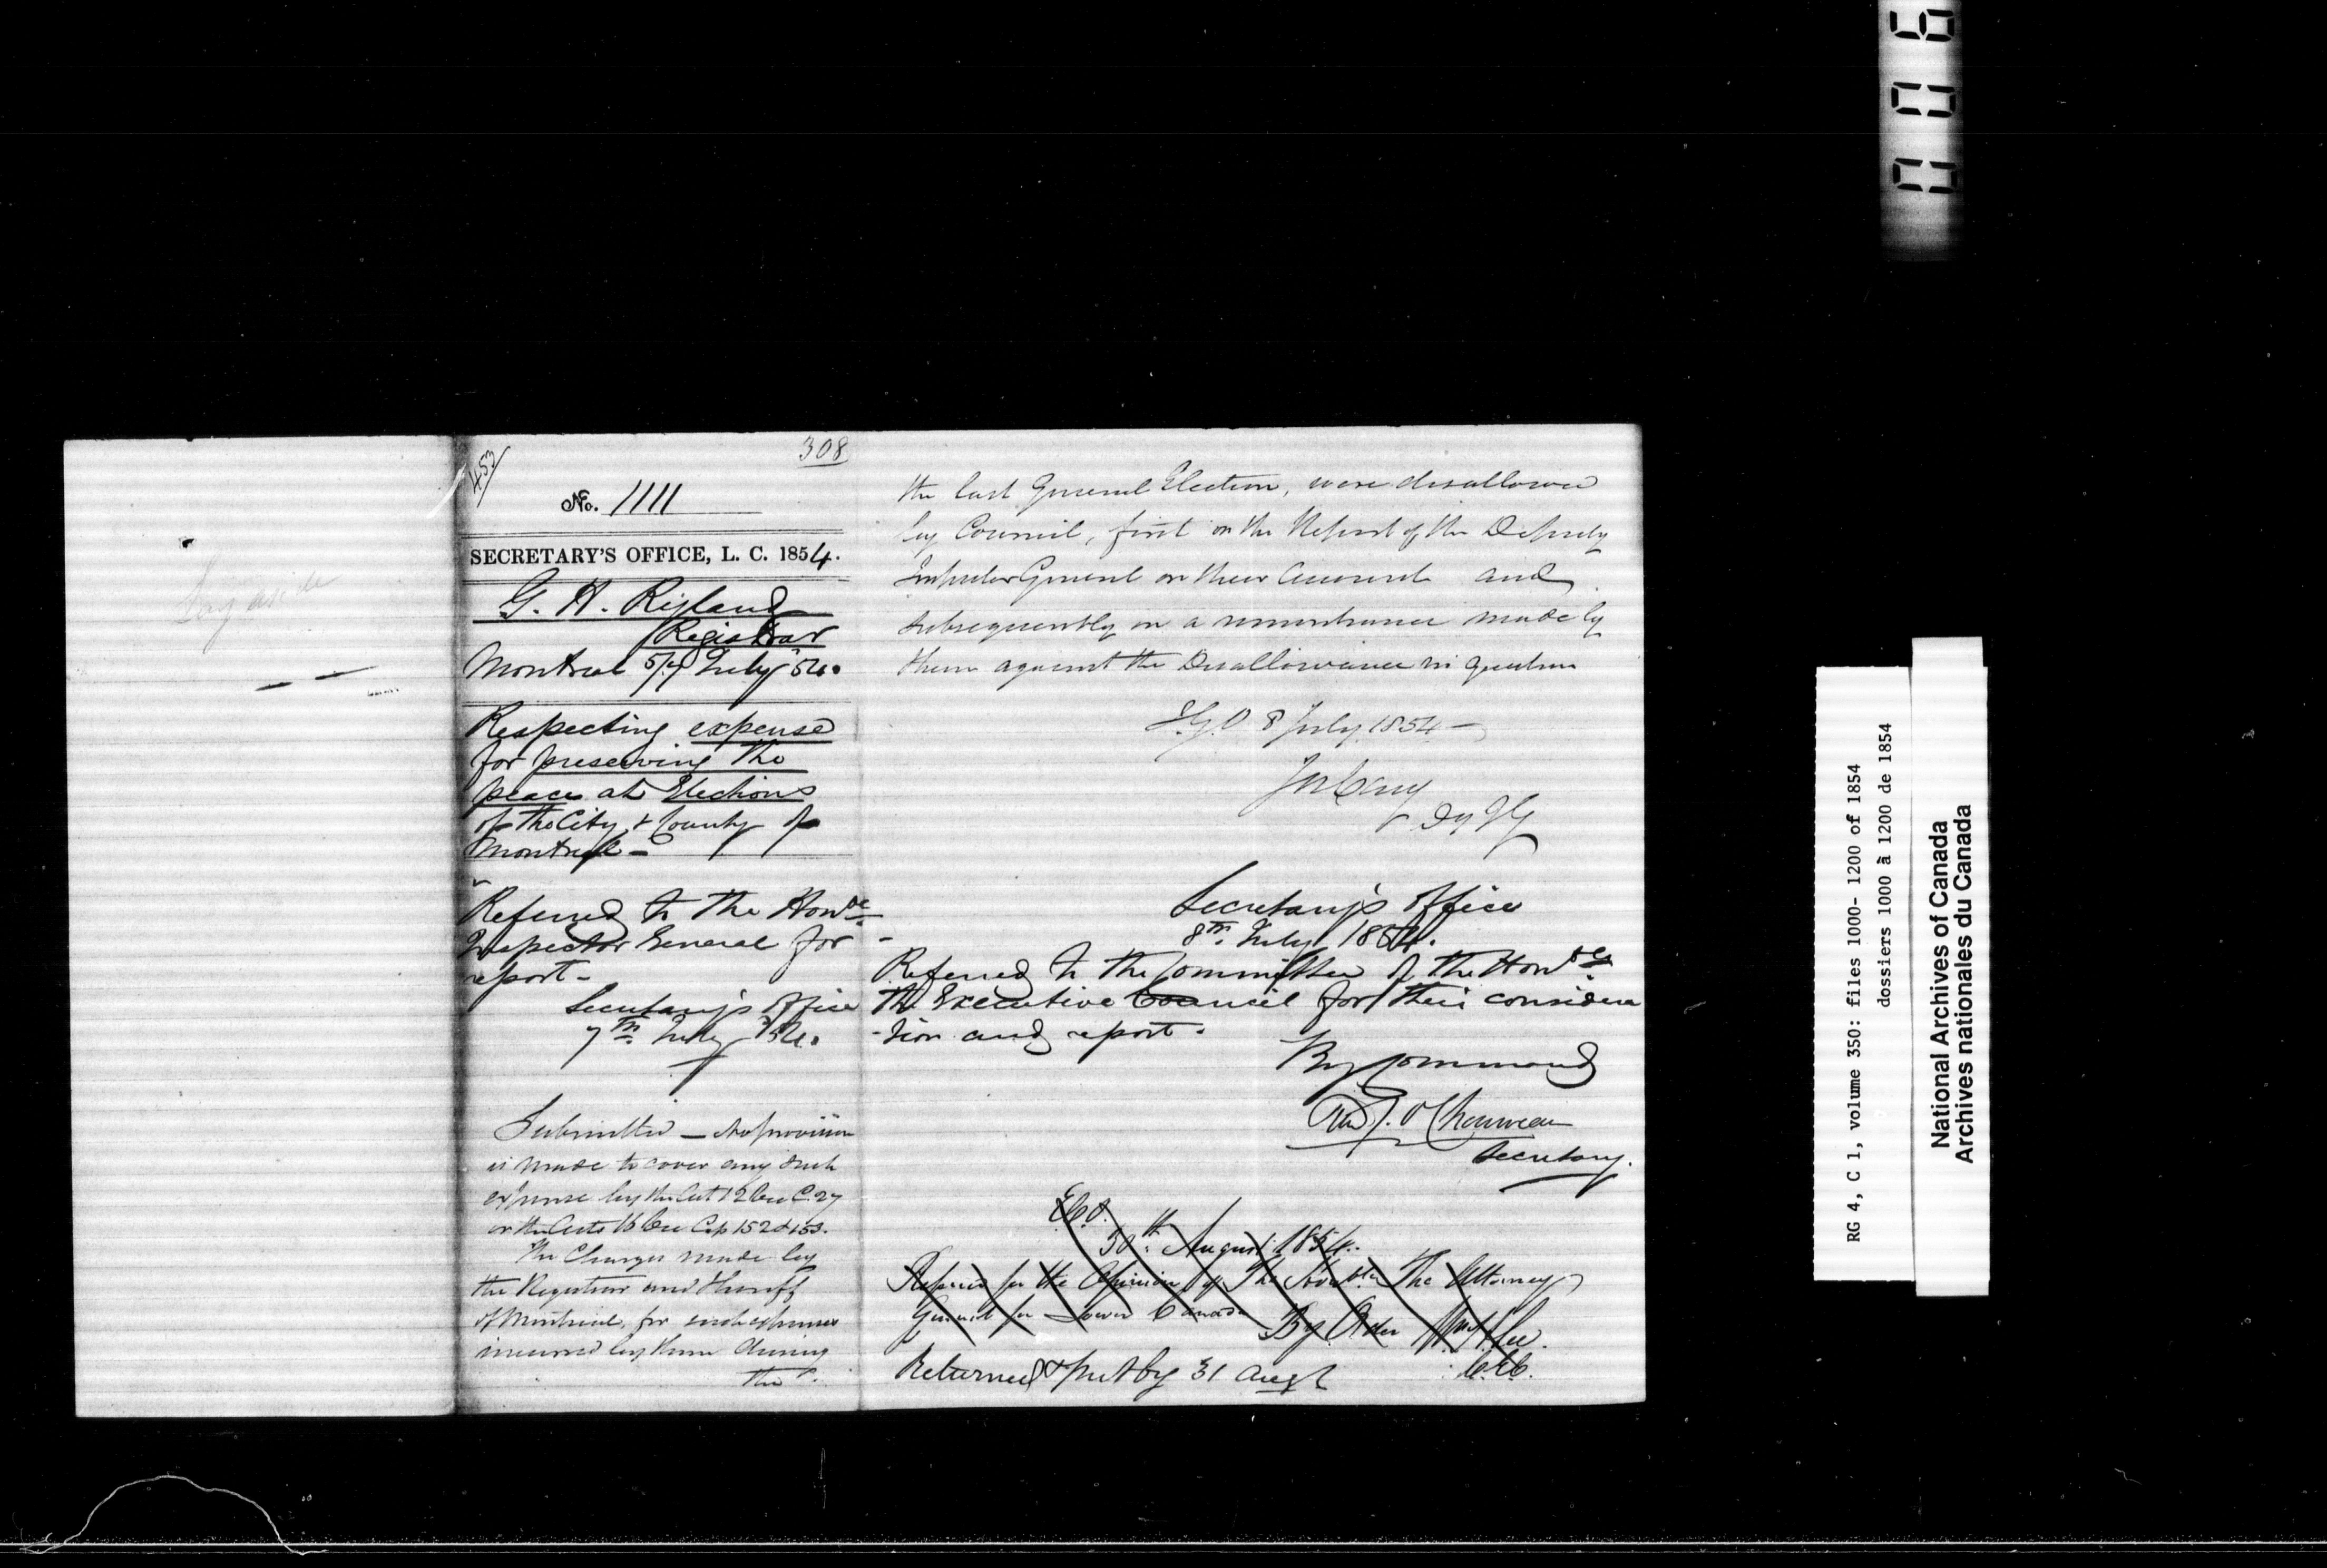 Lay aside
453
308
No. 1111
SECRETARY'S OFFICE, L. C. 1854.
G. H. Ryland
Registrar
Montreal 5/7 July 54.
Respecting expense
for preserving the
peace at Elections
of the City & County of
Montreal -
Referred to the Honble
Inspector General for
report -
Secretary's Office
7th July 54.
Submitted — No provision
is made to cover any such
expense by the Act 12 Vic C. 27
or the Acts 16 Vic Cap 152 & 153.
The Charges made by
the Registrar and Sheriff
of Montreal, for such expenses
incurred by them during
the
the last General Election, were disallowed
by Council, first on the Report of the Deputy
Inspector General on their Account and
subsequently on a remonstrance made by
them against the Disallowance in question
I.G.O 8 July 1854 -
Jos Cary
Dy I G
Secretary's Office
8th July 1854.
Referred to the Committee of the Honble
The Executive Council for their considera
-tion and report.
By Command
P. J. O Chauveau
Secretary.
E.C.O.
30th August 1854.
Referred for the Opinion of The Honble The Attorney
General for Lower Canada
By Order Wm H Lee.
C.E.C.
Returned & put by 31 Augt
006
RG 4, C 1, volume 350: files 1000- 1200 of 1854
dossiers 1000 à 1200 de 1854
National Archives of Canada
Archives nationales du Canada